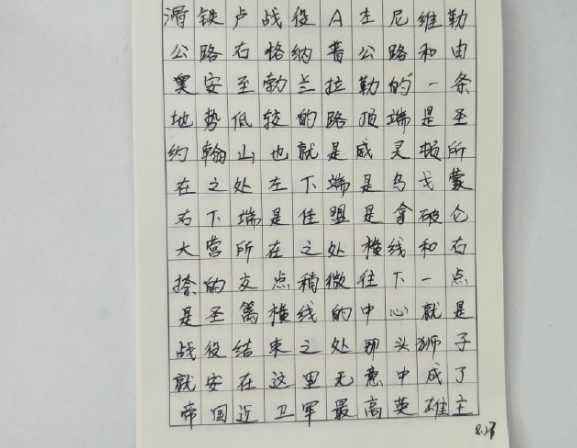 滑铁卢战役A圭尼维勒
公路右恪纳普公路和由
奥安至勃兰拉勒的一条
地势低较的路顶端是圣
约翰山也就是威灵顿所
在之处左下端是乌戈蒙
右下端是佳盟是拿破仑
大营所在之处横线和右
捺的交点稍微往下一点
是圣篱横线的中心就是
战役结束之处那头狮子
就安在这里无意中成了
帝国近卫军最高英雄主
8.23